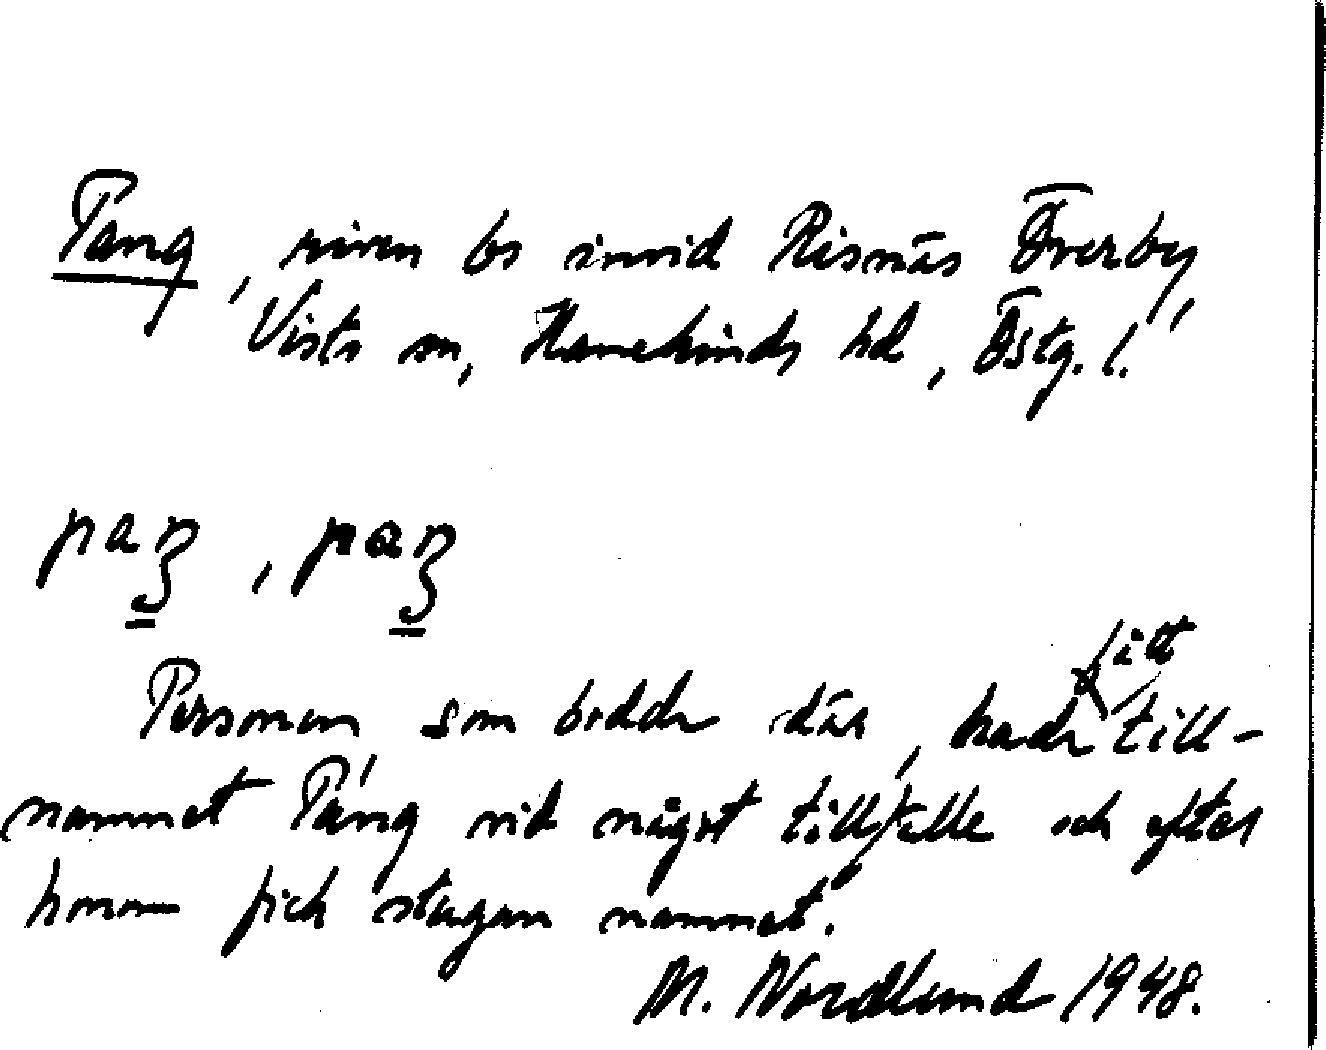 Pang, riven bs invid Risnäs Överby,
Vists sn, Hanekinds hd, Östg. l.
paŋ, paŋ
Personen som bodde där, hade fått till-
namnet Páng vid något tillfälle och efter
honom fick stugan namnet.
M. Nordlund 1948.